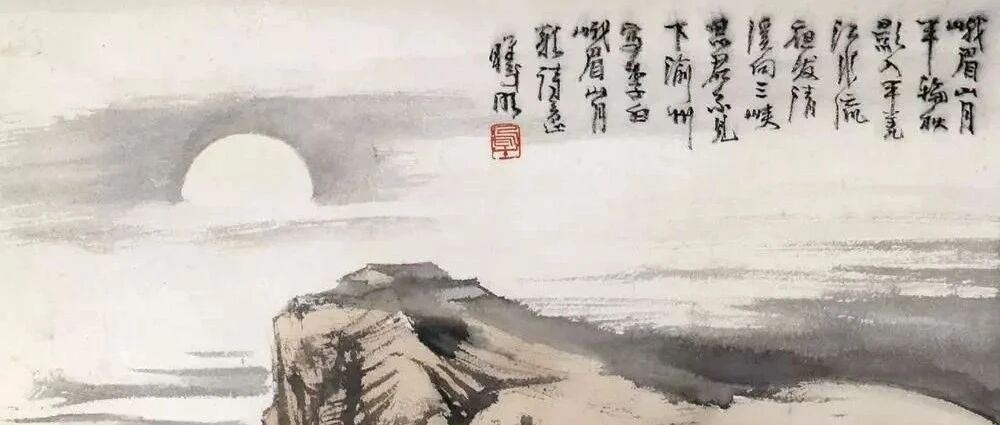 峨眉山月
半輪秋
影入平羌
江水流
夜發清
溪向三峽
思君不見
下渝州
寫李白
峨眉山月
歌詩意